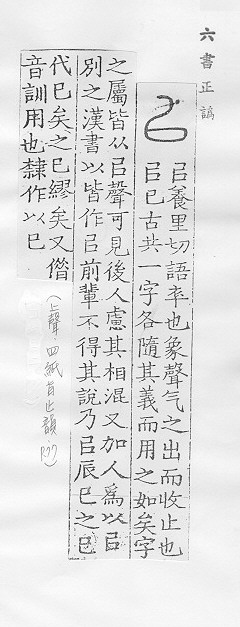 六書正譌
㠯養里切語卒也象聲气之出而收止也
㠯已古共一字各隨其義而用之如矣字
之屬皆从㠯聲可見後人慮其相混又加人爲以㠯
別之漢書以皆作㠯前輩不得其說乃㠯辰巳之巳
代已矣之已繆矣又僣
音訓用也隸作以已
(上聲.四紙首止韻.P.77)